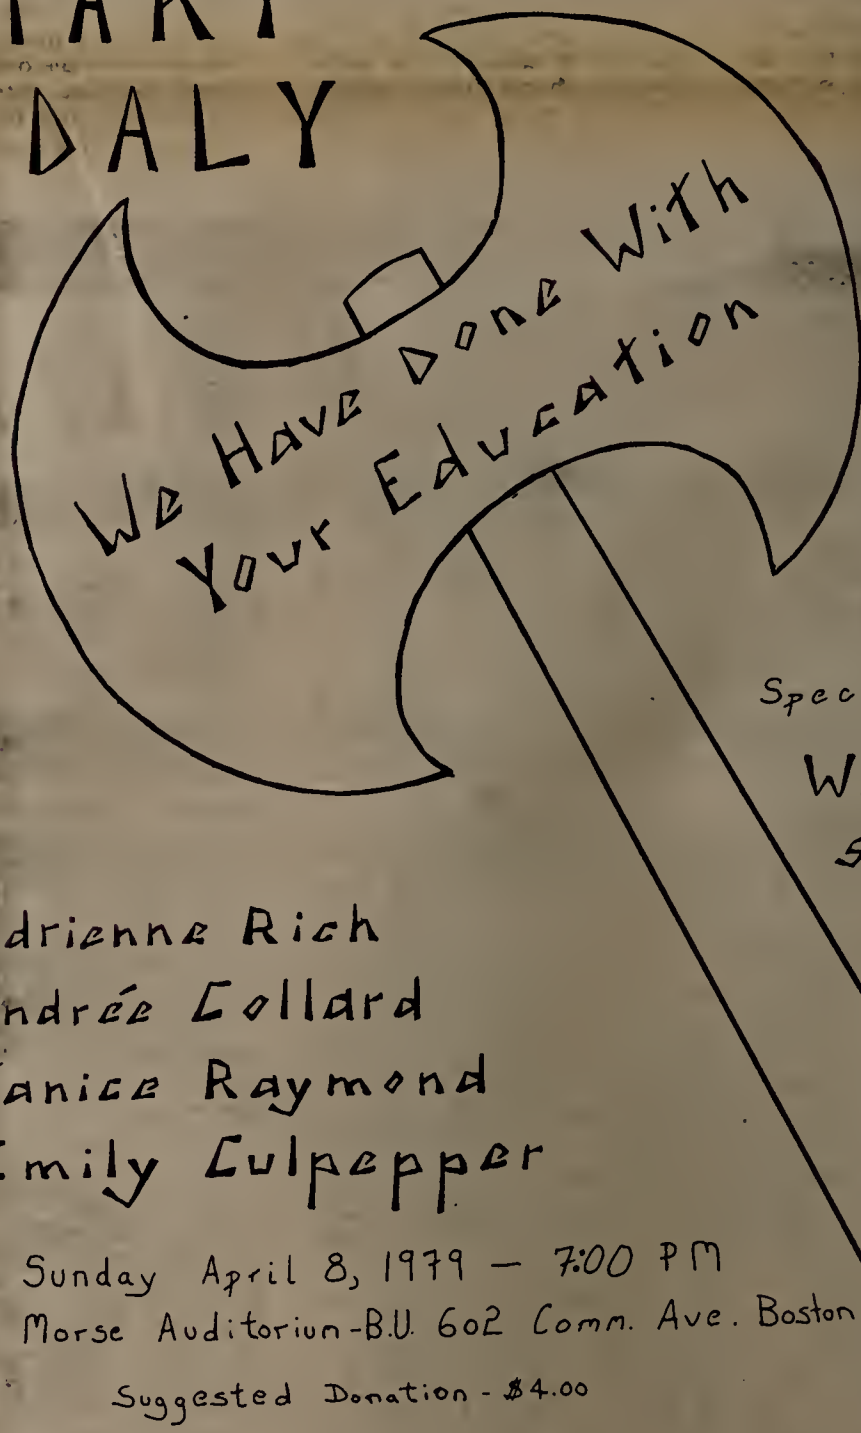 ARY
DALY
We Have Done With
Your Education
Spec
W
S
drienne Rich
ndrée Collard
anice Raymond
mily Culpepper
Sunday April 8, 1979 — 7:00 PM
Morse Auditoriun-B.U. 602 Comm. Ave. Boston
Suggested Donation - $4.00